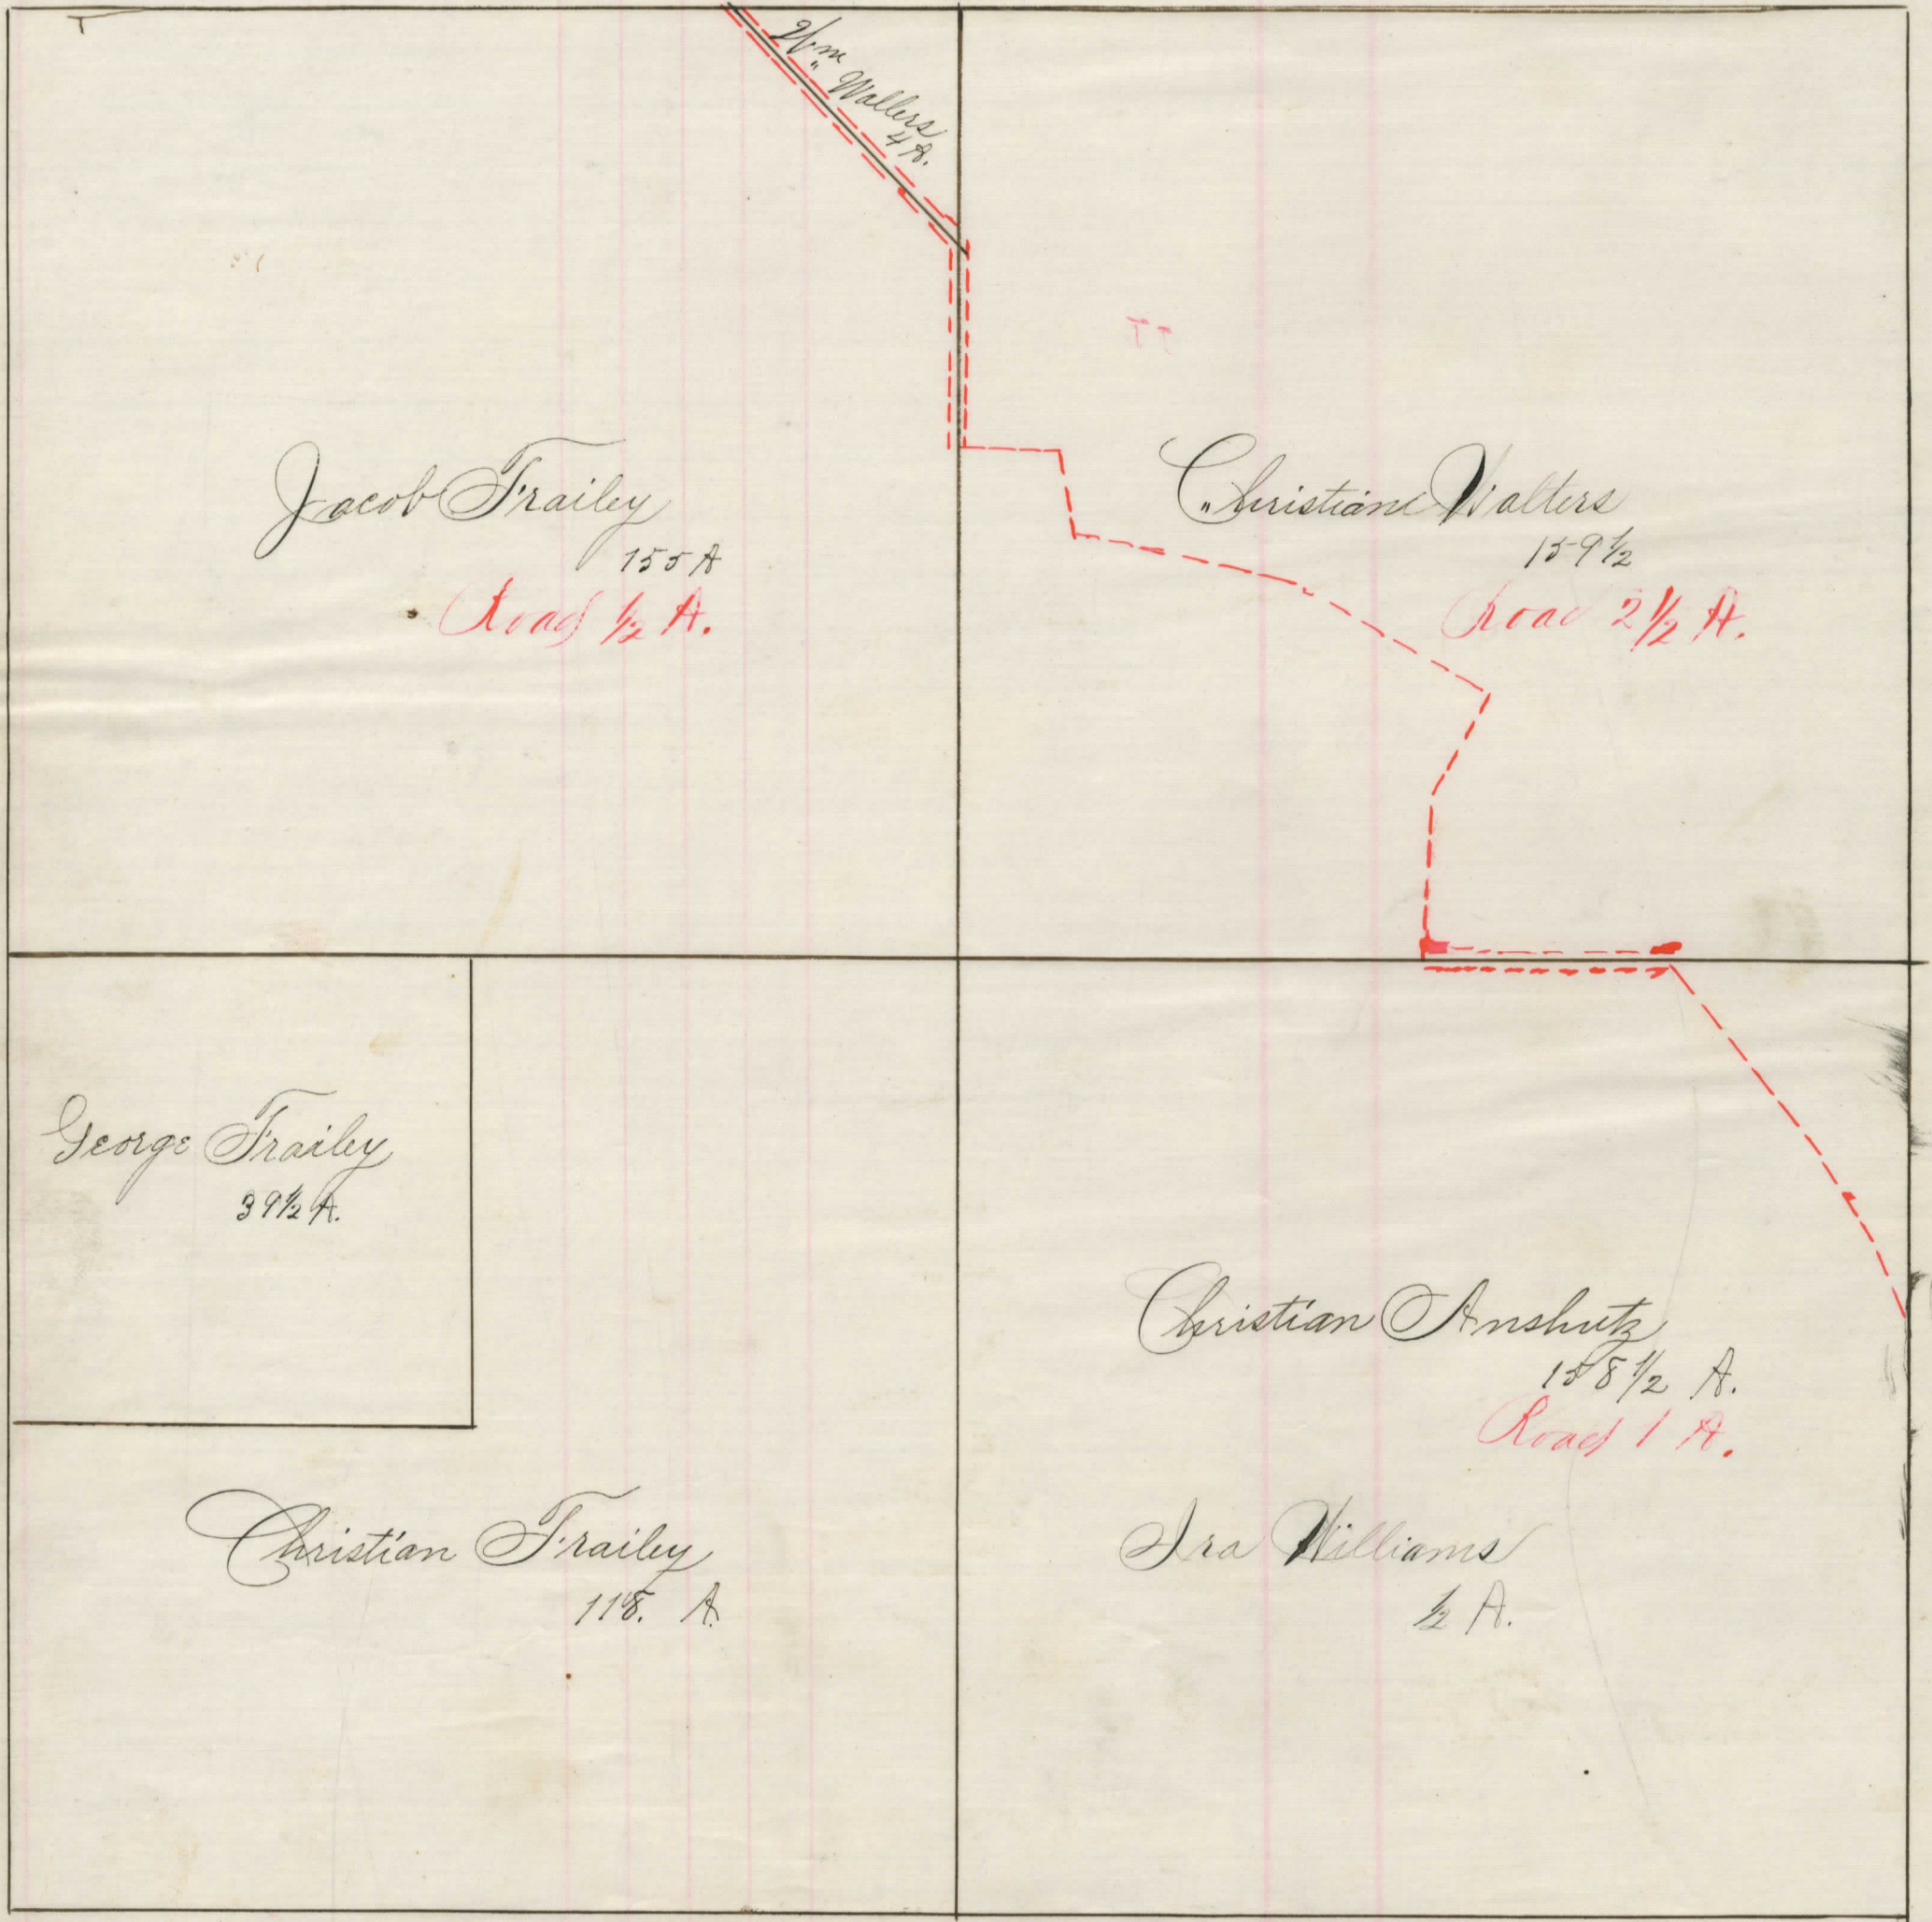 Wm Wallers
4 A.
Jacob Frailey
155 A
Road ½ A.
Christian Walters
159½
Road 2½ A.
George Frailey
39½ A.
Christian Frailey
118. A.
Christian Anshutz
158½ A.
Road 1 A.
Ira Williams
½ A.